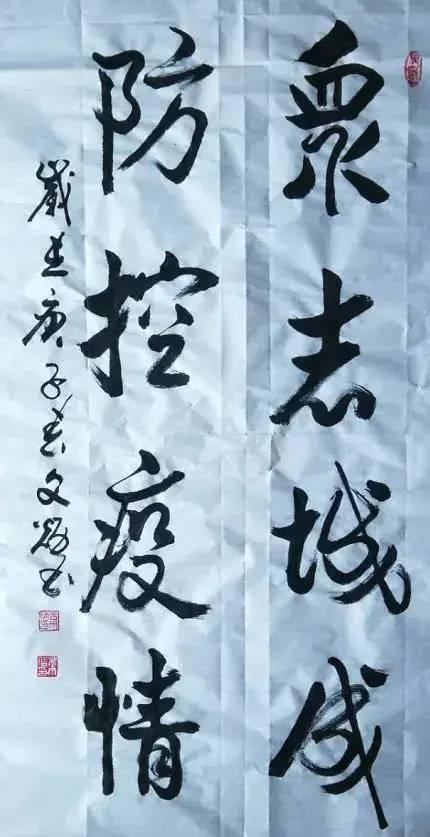 衆志城成
防控疫情
歲在庚子春文书